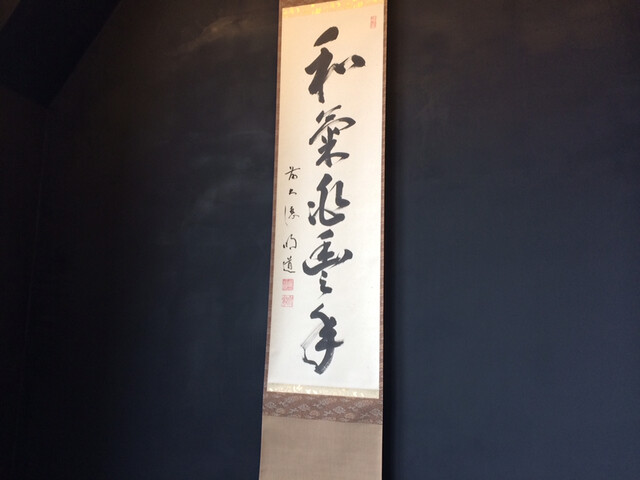 和氣兆豊年
前大徳明道